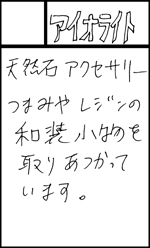 アイオライト
天然石アクセサリー
つまみやレジンの
和装小物を
取りあつかって
います。